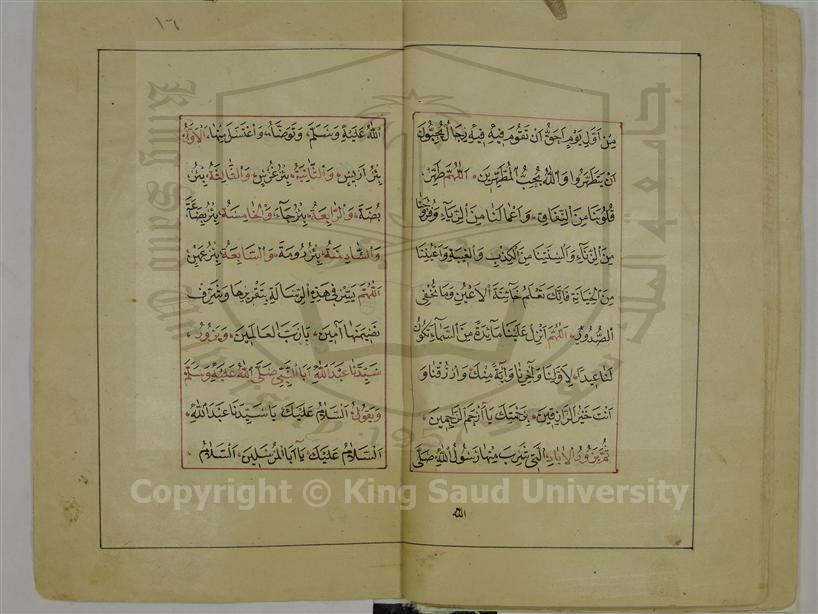 مِنْ اَوَّلِ يَوْمٍ اَحَقُّ اَنْ تَقُومَ فِيهِ فِيهِ رِجَالٌ يُحِبُّونَ
اَنْ يَتَطَهَّرُوا وَاللهُ يُحِبُّ الْمُطَّهِّرِينَ، اَللّٰهُمَّ طَهِّرْ
قُلُوبَنَا مِنَ النِّفَاقِ، وَاَعْمَالَنَا مِنَ الرِّيَاءِ وَفُرُوجَنَا
مِنَ الزِّنَاءِ وَاَلْسِنَتَنَا مِنَ الْكَذِبِ وَالْغِيبَةِ وَاَعْيُنَنَا
مِنَ الْخِيَانَةِ فَاِنَّكَ تَعْلَمُ خَآئِنَةَ الْاَعْيُنِ وَمَا تُخْفِى
الصُّدُورُ، اَللّٰهُمَّ اَنْزِلْ عَلَيْنَا مَآئِدَةً مِنَ السَّمَآءِ تَكُونُ
لَنَا عِيدًا، لِاَوَّلِنَا وَآخِرِنَا وَآيَةً مِنْكَ، وَارْزُقْنَا وَ
اَنْتَ خَيْرُ الرَّازِقِينَ، بِرَحْمَتِكَ يَآ اَرْحَمَ الرَّاحِمِينَ،
ثُمَّ يَزُورُ الْاٰبَارَ، الَّتِي شَرِبَ مِنْهَا رَسُولُ اللهِ صَلَّى
الله
١٦
اللهُ عَلَيْهِ وَسَلَّمَ، وَتَوَضَّأَ، وَاغْتَسَلَ بِهَا، اَلْاُولٰى
بِئْرُ اَرِيسٍ، وَالثَّانِيَةُ، بِئْرُ غَرْسٍ، وَالثَّالِثَةُ، بِئْرُ
بُصَّةَ، وَالرَّابِعَةُ، بِئْرُ حَآءَ، وَالْخَامِسَةُ، بِئْرُ بُضَاعَةَ
وَالسَّادِسَةُ، بِئْرُ رُومَةَ، وَالسَّابِعَةُ، بِئْرُ عِهْنٍ،
اَللّٰهُمَّ يَسِّرْ فِي هٰذِهِ الرِّسَالَةِ بِتَحْرِيرِهَا وَشَرِّفْ
آمِينَ، يَا رَبَّ الْعَالَمِينَ، وَيَزُورُ،
سَيِّدَنَا عَبْدَ اللهِ اَبَا النَّبِيِّ صَلَّى اللهُ عَلَيْهِ وَسَلَّمَ
وَيَقُولُ اَلسَّلَامُ عَلَيْكَ يَا سَيِّدَنَا عَبْدَ اللهِ،
اَلسَّلَامُ عَلَيْكَ، يَآ اَبَا الْمُرْسَلِينَ، اَلسَّلَامُ
King Saud University
جامعة الملك سعود
Copyright © King Saud University